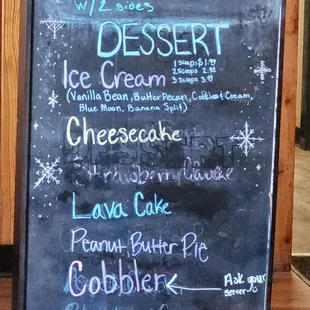 w/2 sides
DESSERT
Ice Cream
1 scoop $1.99
2 scoops 2.99
3 scoops 3.99
(Vanilla Bean, Butter Pecan, Cookies & Cream,
Blue Moon, Banana Split)
Cheesecake
Strawberry
Lava Cake
Peanut Butter Pie
Cobbler
Ask your
server